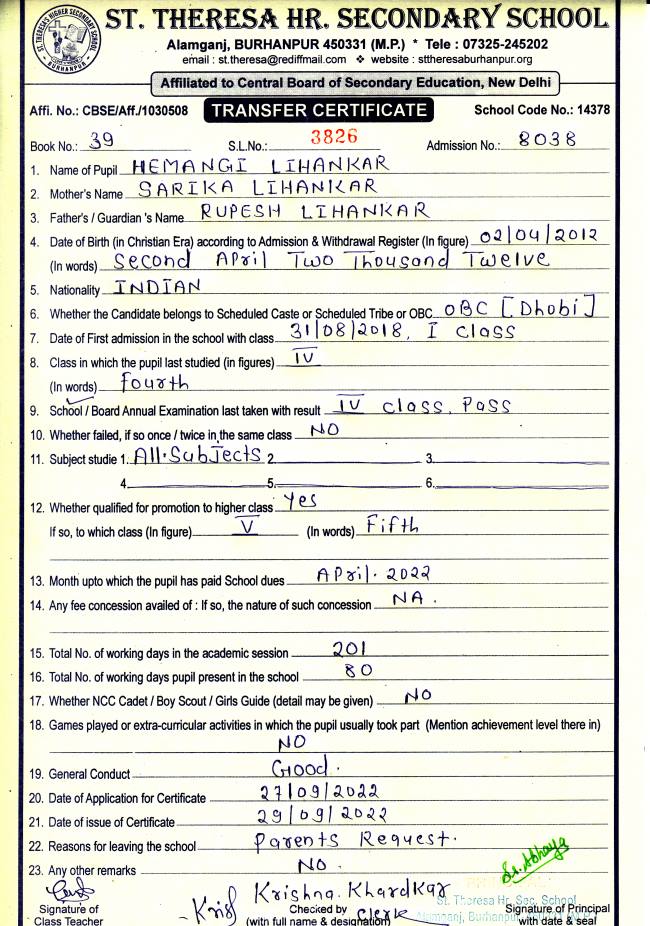 ST. THERESA HR. SECONDARY SCHOOL
Alamganj, BURHANPUR 450331 (M.P.) * Tele : 07325-245202
email : st.theresa@rediffmail.com ❖ website : sttheresaburhanpur.org
Affiliated to Central Board of Secondary Education, New Delhi
Affi. No.: CBSE/Aff./1030508 TRANSFER CERTIFICATE School Code No.: 14378
Book No.: 39 S.L.No.: 3826 Admission No.: 8038
1. Name of Pupil HEMANGI LIHANKAR
2. Mother's Name SARIKA LIHANKAR
3. Father's / Guardian 's Name RUPESH LIHANKAR
4. Date of Birth (in Christian Era) according to Admission & Withdrawal Register (In figure) 02/04/2012
(In words) Second April Two Thousand Twelve
5. Nationality INDIAN
6. Whether the Candidate belongs to Scheduled Caste or Scheduled Tribe or OBC OBC [Dhobi]
7. Date of First admission in the school with class 31/08/2018, I class
8. Class in which the pupil last studied (in figures) IV
(In words) fourth
9. School / Board Annual Examination last taken with result IV class, Pass
10. Whether failed, if so once / twice in the same class NO
11. Subject studie 1. All.Subjects 2. 3.
4. 5. 6.
12. Whether qualified for promotion to higher class Yes
If so, to which class (In figure) V (In words) Fifth
13. Month upto which the pupil has paid School dues April. 2022
14. Any fee concession availed of : If so, the nature of such concession NA.
15. Total No. of working days in the academic session 201
16. Total No. of working days pupil present in the school 80
17. Whether NCC Cadet / Boy Scout / Girls Guide (detail may be given) NO
18. Games played or extra-curricular activities in which the pupil usually took part (Mention achievement level there in)
NO
19. General Conduct Good.
20. Date of Application for Certificate 27/09/2022
21. Date of issue of Certificate 29/09/2022
22. Reasons for leaving the school Parents Request.
23. Any other remarks NO.
Sr. Abhaya
Krishna. Khardkar
St. Theresa Hr. Sec. School
Signature of Checked by Signature of Principal
Alamganj, Burhanpur
Class Teacher (with full name & designation) Clerk with date & seal